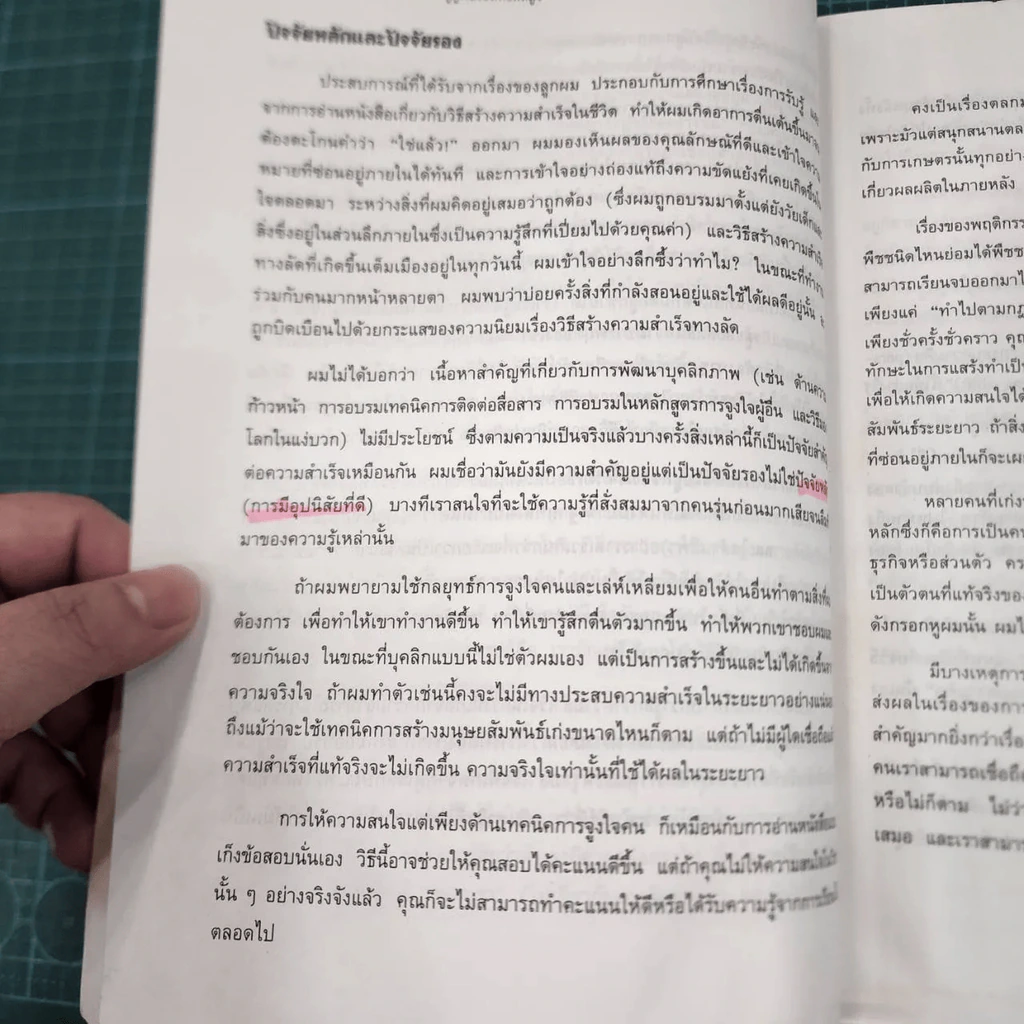 ปัจจัยหลักและปัจจัยรอง
ประสบการณ์ที่ได้รับจากเรื่องของลูกผม ประกอบกับการศึกษาเรื่องการรับรู้
จากการอ่านหนังสือเกี่ยวกับวิธีสร้างความสำเร็จในชีวิต ทำให้ผมเกิดอาการตื่นเต้นขึ้นมาจน
ต้องตะโกนคำว่า “ใช่แล้ว!” ออกมา ผมมองเห็นผลของคุณลักษณ์ที่ดีและเข้าใจความ
หมายที่ซ่อนอยู่ภายในได้ทันที และการเข้าใจอย่างถ่องแท้ถึงความขัดแย้งที่เคยเกิดขึ้นใน
ใจตลอดมา ระหว่างสิ่งที่ผมคิดอยู่เสมอว่าถูกต้อง (ซึ่งผมถูกอบรมมาตั้งแต่ยังวัยเด็กและ
สิ่งซึ่งอยู่ในส่วนลึกภายในซึ่งเป็นความรู้สึกที่เปี่ยมไปด้วยคุณค่า) และวิธีสร้างความสำเร็จ
ทางลัดที่เกิดขึ้นเต็มเมืองอยู่ในทุกวันนี้ ผมเข้าใจอย่างลึกซึ้งว่าทำไม? ในขณะที่ทำงาน
ร่วมกับคนมากหน้าหลายตา ผมพบว่าบ่อยครั้งสิ่งที่กำลังสอนอยู่และใช้ได้ผลดีอยู่นั้น
ถูกบิดเบือนไปด้วยกระแสของความนิยมเรื่องวิธีสร้างความสำเร็จทางลัด
ผมไม่ได้บอกว่า เนื้อหาสำคัญที่เกี่ยวกับการพัฒนาบุคลิกภาพ (เช่น ด้านความ
ก้าวหน้า การอบรมเทคนิคการติดต่อสื่อสาร การอบรมในหลักสูตรการจูงใจผู้อื่น และวิธีมอง
โลกในแง่บวก) ไม่มีประโยชน์ ซึ่งตามความเป็นจริงแล้วบางครั้งสิ่งเหล่านี้ก็เป็นปัจจัยสำคัญ
ต่อความสำเร็จเหมือนกัน ผมเชื่อว่ามันยังมีความสำคัญอยู่แต่เป็นปัจจัยรองไม่ใช่ปัจจัยหลัก
(การมีอุปนิสัยที่ดี) บางทีเราสนใจที่จะใช้ความรู้ที่สั่งสมมาจากคนรุ่นก่อนมากเสียจนลืม
มาของความรู้เหล่านั้น
ถ้าผมพยายามใช้กลยุทธ์การจูงใจคนและเล่ห์เหลี่ยมเพื่อให้คนอื่นทำตามสิ่งที่ผม
ต้องการ เพื่อทำให้เขาทำงานดีขึ้น ทำให้เขารู้สึกตื่นตัวมากขึ้น ทำให้พวกเขาชอบผมและ
ชอบกันเอง ในขณะที่บุคลิกแบบนี้ไม่ใช่ตัวผมเอง แต่เป็นการสร้างขึ้นและไม่ได้เกิดขึ้นจาก
ความจริงใจ ถ้าผมทำตัวเช่นนี้คงจะไม่มีทางประสบความสำเร็จในระยะยาวอย่างแน่นอน
ถึงแม้ว่าจะใช้เทคนิคการสร้างมนุษยสัมพันธ์เก่งขนาดไหนก็ตาม แต่ถ้าไม่มีผู้ใดเชื่อถือแล้ว
ความสำเร็จที่แท้จริงจะไม่เกิดขึ้น ความจริงใจเท่านั้นที่ใช้ได้ผลในระยะยาว
การให้ความสนใจแต่เพียงด้านเทคนิคการจูงใจคน ก็เหมือนกับการอ่านหนังสือและ
เก็งข้อสอบนั่นเอง วิธีนี้อาจช่วยให้คุณสอบได้คะแนนดีขึ้น แต่ถ้าคุณไม่ให้ความสนใจใน
นั้น ๆ อย่างจริงจังแล้ว คุณก็จะไม่สามารถทำคะแนนให้ดีหรือได้รับความรู้จากการเรียน
ตลอดไป
คงเป็นเรื่องตลก
เพราะมัวแต่สนุกสนาน
กับการเกษตรนั้นทุกอย่าง
เกี่ยวผลผลิตในภายหลัง
เรื่องของพฤติกรร
พืชชนิดไหนย่อมได้พืช
สามารถเรียนจบออกมา
เพียงแค่ “ทำไปตามกฎ
เพียงชั่วครั้งชั่วคราว คุณ
ทักษะในการแสร้งทำเป็น
เพื่อให้เกิดความสนใจได้
สัมพันธ์ระยะยาว ถ้าสิ่ง
ที่ซ่อนอยู่ภายในก็จะเผ
หลายคนที่เก่ง
หลักซึ่งก็คือการเป็นคน
ธุรกิจหรือส่วนตัว
เป็นตัวตนที่แท้จริงของ
ดังกรอกหูผมนั้น
มีบางเหตุการ
ส่งผลในเรื่องของการ
สำคัญมากยิ่งกว่าเรื่อง
คนเราสามารถเชื่อถือ
หรือไม่ก็ตาม ไม่ว่า
เสมอ และเราสามาร